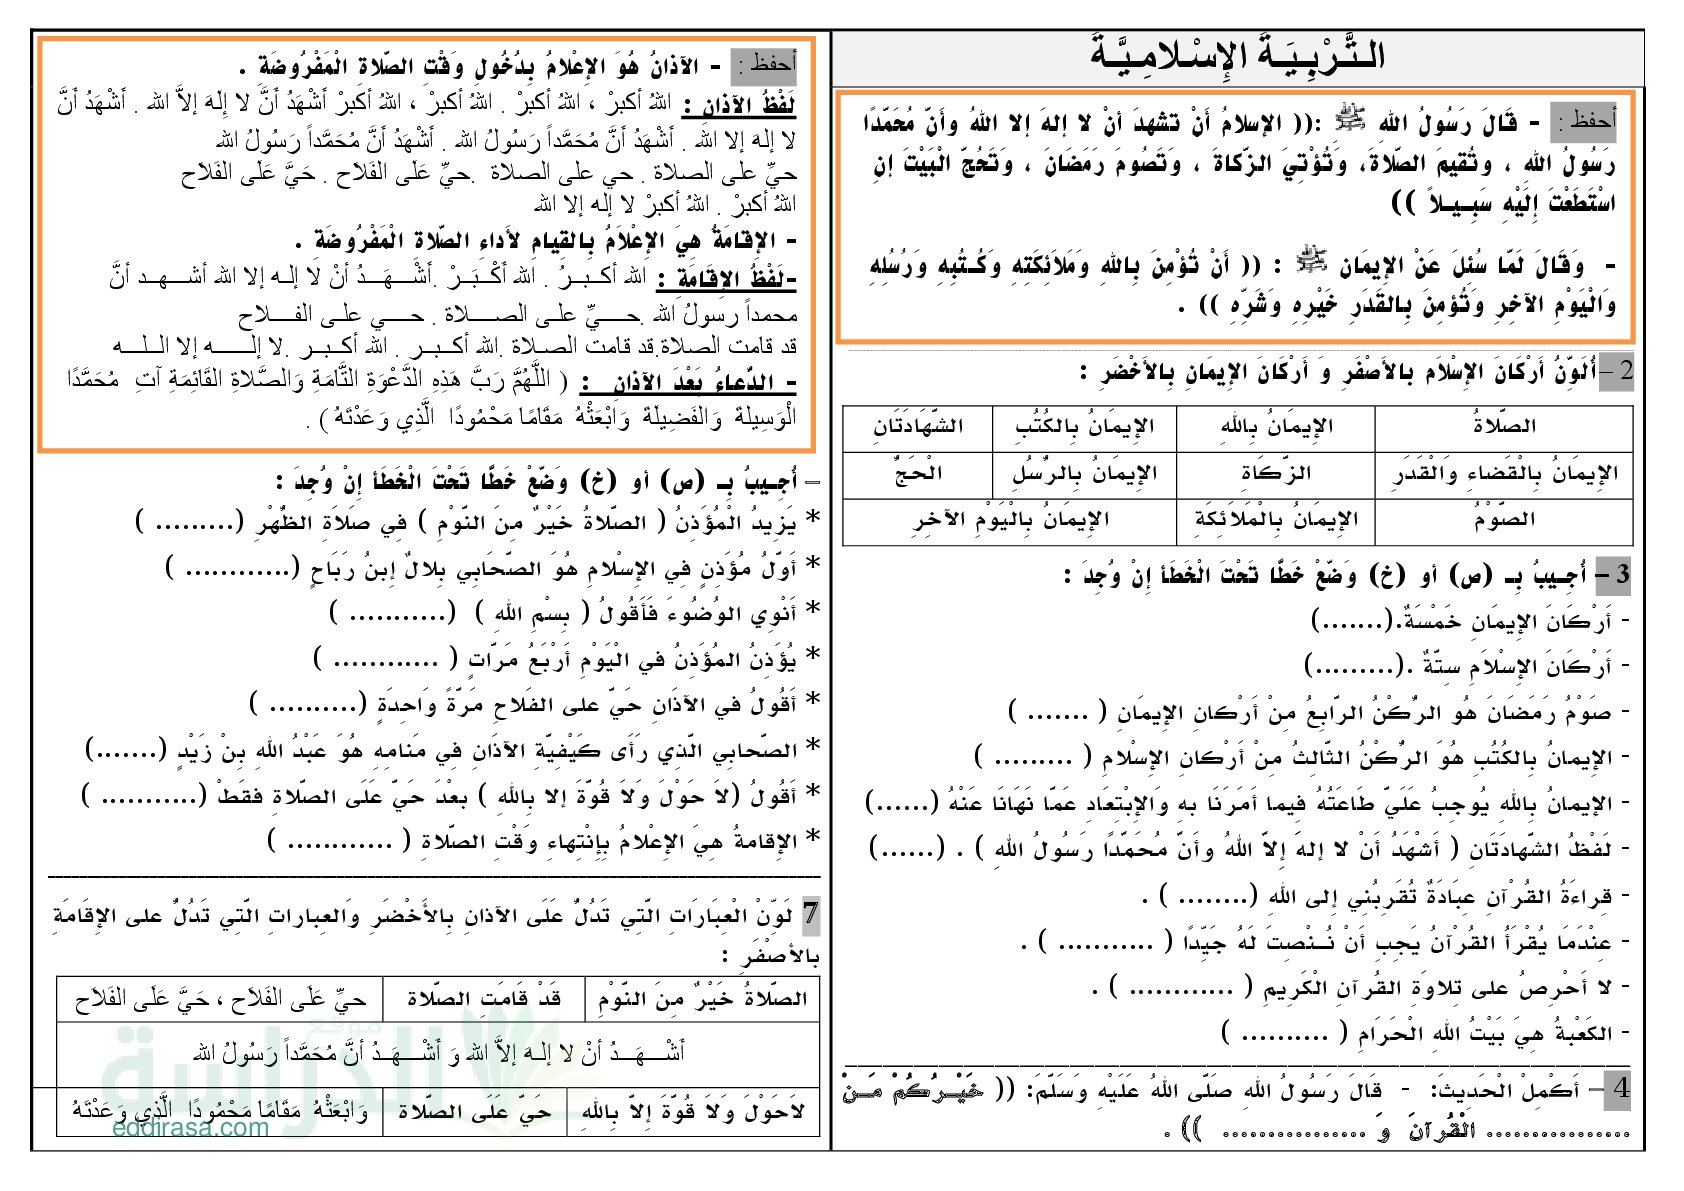 الـتَّـرْبِـيَـةُ الإِسْـلامِـيَّـةُ
أحفظ : - قَالَ رَسُولُ اللهِ ﷺ :(( الإسلامُ أنْ تشهدَ أنْ لا إلهَ إلا اللهُ وأنّ مُحَمّدًا
رَسُولُ اللهِ ، وتُقيمَ الصّلاةَ، وَتُؤْتِيَ الزّكاةَ ، وَتَصُومَ رَمَضَانَ ، وَتَحُجّ الْبَيْتَ إنِ
اسْتَطَعْتَ إِلَيْهِ سَبِـيـلاً ))
- وَقَالَ لَمّا سُئِلَ عَنْ الإيمَان ﷺ : (( أَنْ تُؤْمِنَ بِاللهِ وَمَلَائِكَتِهِ وَكُـتُبِهِ وَرُسُلِهِ
وَالْيَوْمِ الآخِرِ وَتُؤمِنَ بِالقَدَرِ خَيْرِهِ وَشَرّهِ )) .
2 – أُلَوّنُ أرْكَانَ الإسْلَام بالأصْفَر وَ أرْكَانَ الإيمَانِ بِالأخْضَرِ :
الصّلاةُ الإيمَانُ بِاللهِ الإيمَانُ بِالكُتُبِ الشّهَادَتَانِ
الإيمَانُ بِالْقَضَاء وَالْقَدَرِ الزّكَاةِ الإيمَانُ بِالرّسُلِ الْحَجّ
الصّوْمُ الإيمَانُ بِالْمَلَائِكَةِ الإيمَانُ بِالْيَوْمِ الآخِرِ
3 – أُجِـيبُ بِـ (ص) أو (خ) وَضَعْ خَطًّا تَحْتَ الْخَطَأ إنْ وُجِدَ :
- أَرْكَانَ الإيمَانِ خَمْسَةٌ.(.......)
- أَرْكَانَ الإسْلَامِ ستّةٌ .(.........)
- صَوْمُ رَمَضَانَ هو الرّكْنُ الرّابِعُ مِنْ أرْكانِ الإيمَانِ ( ....... )
- الإيمَانُ بِالكُتُبِ هُوَ الرّكْنُ الثّالِثُ مِنْ أَرْكَانِ الإسْلامِ ( ......... )
- الإيمَانُ بِاللهِ يُوجِبُ عَلَيّ طَاعَتُهُ فيما أمَرَنَا بهِ وَالإبْتعَادِ عَمّا نَهَانَا عَنْهُ (......)
- لَفْظُ الشّهادَتَانِ ( أَشْهَدُ أنْ لا إلهَ إلاّ اللهُ وأنّ مُحَمّدًا رَسُولُ اللهِ ) . (......)
- قِراءَةُ القُرْآنِ عِبَادَةٌ تُقَرِبُنِي إلى اللهِ (........ ) .
- عِنْدَمَا يُقْرَأُ القُرْآنُ يَجِبِ أنْ نُـنْصِتَ لَهُ جَيّدًا ( ........... ) .
- لا أحْرِصُ على تِلاوَةِ القُرآنِ الْكَرِيمِ ( ............ ) .
- الكَعْبَةُ هِيَ بَيْتُ اللهِ الْحَرَامِ ( .......... )
4 – أَكْمِلْ الْحَدِيثَ: - قَالَ رَسُولُ اللهِ صَلّى اللهُ عَلَيْهِ وَسَلّمَ: (( خَيْـرُكُمْ مَـنْ
................ الْقُرآنَ وَ ................ )) .
أحفظ : - الآذانُ هُوَ الإعْلامُ بِدُخُولِ وَقْتِ الصّلاةِ الْمَفْرُوضَةِ .
لَفْظُ الآذانِ : اللهُ أكبرْ ، اللهُ أكبرْ . اللهُ أكبرْ ، اللهُ أكبرْ أَشْهَدُ أنَّ لا إِلَهَ إلاَّ الله . أَشْهَدُ أنَّ
لا إله إلا الله . أَشْهَدُ أَنَّ مُحَمَّداً رَسُولُ الله . أَشْهَدُ أَنَّ مُحَمَّداً رَسُولُ الله
حيِّ على الصلاة . حي على الصلاة .حيِّ عَلَى الفَلَاح . حَيَّ عَلَى الفَلَاح
اللهُ أكبرْ . اللهُ أكبرْ لا إله إلا الله
- الإقامَةُ هِيَ الإعْلَامُ بِالقِيامِ لأداءِ الصّلاةِ الْمَفْرُوضَةِ .
-لَفْظُ الإقَامَةِ : الله أكـبـرُ . الله أَكْـبَـرْ .أَشْـــهَــدُ أنْ لا إلـه إلا الله أشـــهـد أنَّ
محمداً رسولُ الله .حـــــيِّ علـى الصـــــلاة . حـــــي علـى الفــــلاح
قد قامت الصلاة.قد قامت الصـلاة .الله أكـبـر . الله أكـبـر .لا إلــــــه إلا الـلـــه
- الدّعاءُ بَعْدَ الآذانِ : ( اللَّهُمَّ رَبَّ هَذِهِ الدَّعْوَةِ التَّامَةِ وَالصَّلاةِ القَائِمَةِ آتِ مُحَمَّدًا
الْوَسِيلَةَ وَالفَضِيلَةَ وَابْعَثْهُ مَقَامًا مَحْمُودًا الَّذِي وَعَدْتَهُ ) .
– أُجِـيبُ بِـ (ص) أو (خ) وَضَعْ خَطًّا تَحْتَ الْخَطَأ إنْ وُجِدَ :
* يَزِيدُ الْمُؤَذِنُ ( الصّلاةُ خَيْرٌ مِنَ النّوْمِ ) فِي صَلَاةِ الظّهْرِ (......... )
* أوّلُ مُؤَذِنٍ في الإسْلامِ هُوَ الصّحَابِي بِلالُ إبنُ رَبَاحٍ (............ )
* أَنْوِي الوُضُوءَ فَأَقُولُ ( بِسْمِ اللهِ ) (........... )
* يُؤَذِنُ المُؤَذِنُ في الْيَوْمِ أرْبَعُ مَرّاتٍ ( ............ )
* أَقُولُ في الآذَانِ حَيّ على الفَلَاحِ مَرّةً وَاحِدَةٍ (.......... )
* الصّحابِي الّذي رَأَى كَيْفِيّةِ الآذَانِ في مَنامِهِ هُوَ عَبْدُ اللهِ بِنْ زَيْدٍ (.......)
* أقُولُ (لاَ حَوْلَ وَلاَ قُوّةَ إلا بِاللهِ ) بعْدَ حَيّ عَلَى الصّلاةِ فقَطْ (........... )
* الإقامةُ هِيَ الإعْلامُ بِإِنْتِهاءِ وَقْتِ الصّلاةِ ( ............ )
7 لَوّنْ الْعِبَارَاتِ الّتِي تَدُلّ عَلَى الآذانِ بِالأَخْضَرِ وَالعِباراتِ الّتِي تَدُلّ على الإقَامَةِ
بالأصْفَرِ :
الصّلاةُ خَيْرٌ مِنَ النّوْمِ قَدْ قَامَتِ الصّلاة حيِّ عَلَى الفَلَاح ، حَيَّ عَلَى الفَلَاح
أَشْـــهَــدُ أنْ لا إلـه إلاَّ الله وَ أَشْــهَــدُ أنَّ مُحَمَّداً رَسُولُ الله
لاَحَوْلَ وَلاَ قُوّةَ إلاّ بِاللهِ حَيّ عَلَى الصّلاة وَابْعَثْهُ مَقَامًا مَحْمُودًا الَّذِي وَعَدْتَهُ
موقع
الدراسة
eddirasa.com